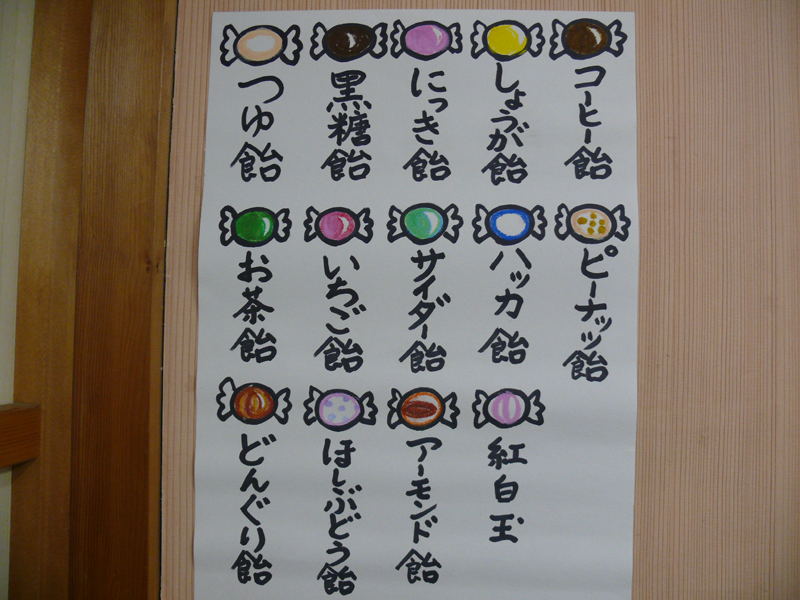 コーヒー飴
しょうが飴
にっき飴
黒糖飴
つゆ飴
ピーナッツ飴
ハッカ飴
サイダー飴
いちご飴
お茶飴
紅白玉
アーモンド飴
ほしぶどう飴
どんぐり飴